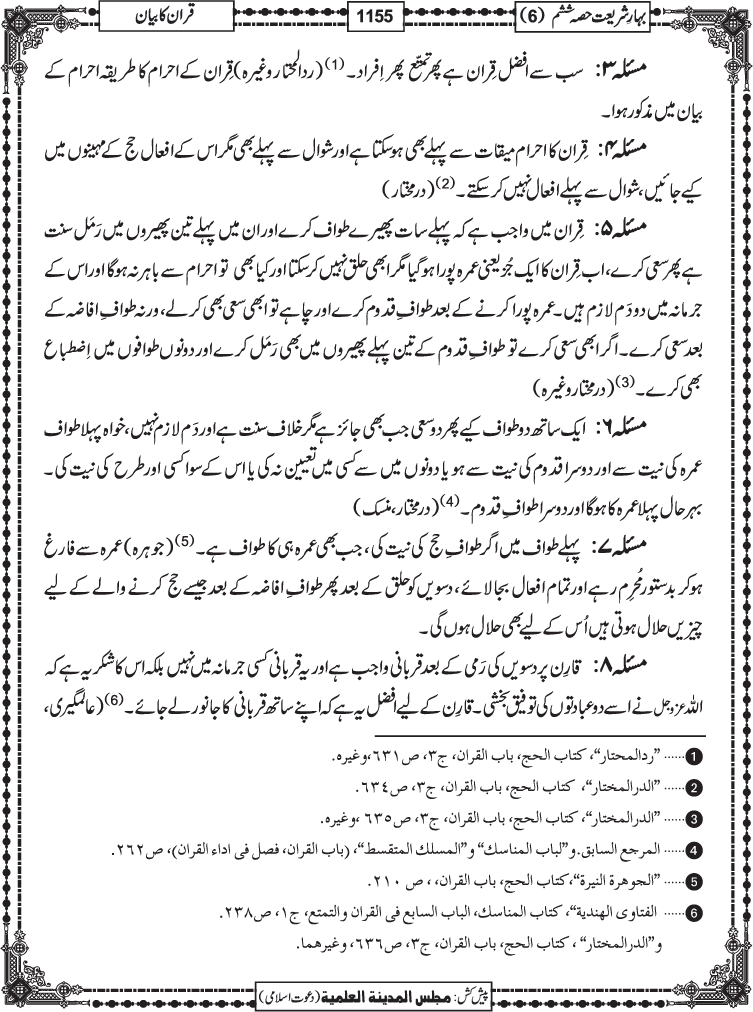 بہارِشریعت حصہ ششم (6)
1155
قران کا بیان
مسئلہ ۳: سب سے افضل قِران ہے پھر تمتع پھر اِفراد۔(1) (ردالمحتار وغیرہ) قِران کے احرام کا طریقہ احرام کے
بیان میں مذکور ہوا۔
مسئلہ ۴: قِران کا احرام میقات سے پہلے بھی ہوسکتا ہے اور شوال سے پہلے بھی مگر اس کے افعال حج کے مہینوں میں
کیے جائیں، شوال سے پہلے افعال نہیں کرسکتے۔(2) (درمختار)
مسئلہ ۵: قِران میں واجب ہے کہ پہلے سات پھیرے طواف کرے اور ان میں پہلے تین پھیروں میں رَمَل سنت
ہے پھر سعی کرے، اب قِران کا ایک جُز یعنی عمرہ پورا ہوگیا مگر ابھی حلق نہیں کرسکتا اور کیا بھی تو احرام سے باہر نہ ہوگا اور اس کے
جرمانہ میں دو دَم لازم ہیں۔ عمرہ پورا کرنے کے بعد طوافِ قدوم کرے اور چاہے تو ابھی سعی بھی کرلے، ورنہ طوافِ افاضہ کے
بعد سعی کرے۔ اگر ابھی سعی کرے تو طوافِ قدوم کے تین پہلے پھیروں میں بھی رَمَل کرے اور دونوں طوافوں میں اِضطباع
بھی کرے۔(3) (درمختار وغیرہ)
مسئلہ ۶: ایک ساتھ دو طواف کیے پھر دو سعی جب بھی جائز ہے مگر خلاف سنت ہے اور دَم لازم نہیں، خواہ پہلا طواف
عمرہ کی نیت سے اور دوسرا قدوم کی نیت سے ہو یا دونوں میں سے کسی میں تعیین نہ کی یا اس کے سوا کسی اور طرح کی نیت کی۔
بہرحال پہلا عمرہ کا ہوگا اور دوسرا طوافِ قدوم۔(4) (درمختار، منسک)
مسئلہ ۷: پہلے طواف میں اگر طوافِ حج کی نیت کی، جب بھی عمرہ ہی کا طواف ہے۔(5) (جوہرہ) عمرہ سے فارغ
ہوکر بدستور مُحرِم رہے اور تمام افعال بجا لائے، دسویں کو حلق کے بعد پھر طوافِ افاضہ کے بعد جیسے حج کرنے والے کے لیے
چیزیں حلال ہوتی ہیں اُس کے لیے بھی حلال ہوں گی۔
مسئلہ ۸: قارِن پر دسویں کی رَمی کے بعد قربانی واجب ہے اور یہ قربانی کسی جرمانہ میں نہیں بلکہ اس کا شکریہ ہے کہ
اللہ عزوجل نے اسے دو عبادتوں کی توفیق بخشی۔ قارِن کے لیے افضل یہ ہے کہ اپنے ساتھ قربانی کا جانور لے جائے۔(6) (عالمگیری،
1 ...... ”ردالمحتار“، کتاب الحج، باب القران، ج۳، ص۶۳۱، وغیرہ.
2 ...... ”الدرالمختار“، کتاب الحج، باب القران، ج۳، ص۶۳٤.
3 ...... ”الدرالمختار“، کتاب الحج، باب القران، ج۳، ص۶۳٥، وغیرہ.
4 ...... المرجع السابق. و”لباب المناسك“ و”المسلك المتقسط“، (باب القران، فصل فی اداء القران)، ص۲۶۲.
5 ...... ”الجوهرة النيرة“، کتاب الحج، باب القران، ، ص ۲۱۰.
6 ...... الفتاوى الهندية“، کتاب المناسك، الباب السابع فی القران والتمتع، ج۱، ص۲۳۸.
و”الدرالمختار“ ، کتاب الحج، باب القران، ج۳، ص۶۳۶، وغیرهما.
پیش کش: مجلس المدینة العلمیة (دعوت اسلامی)